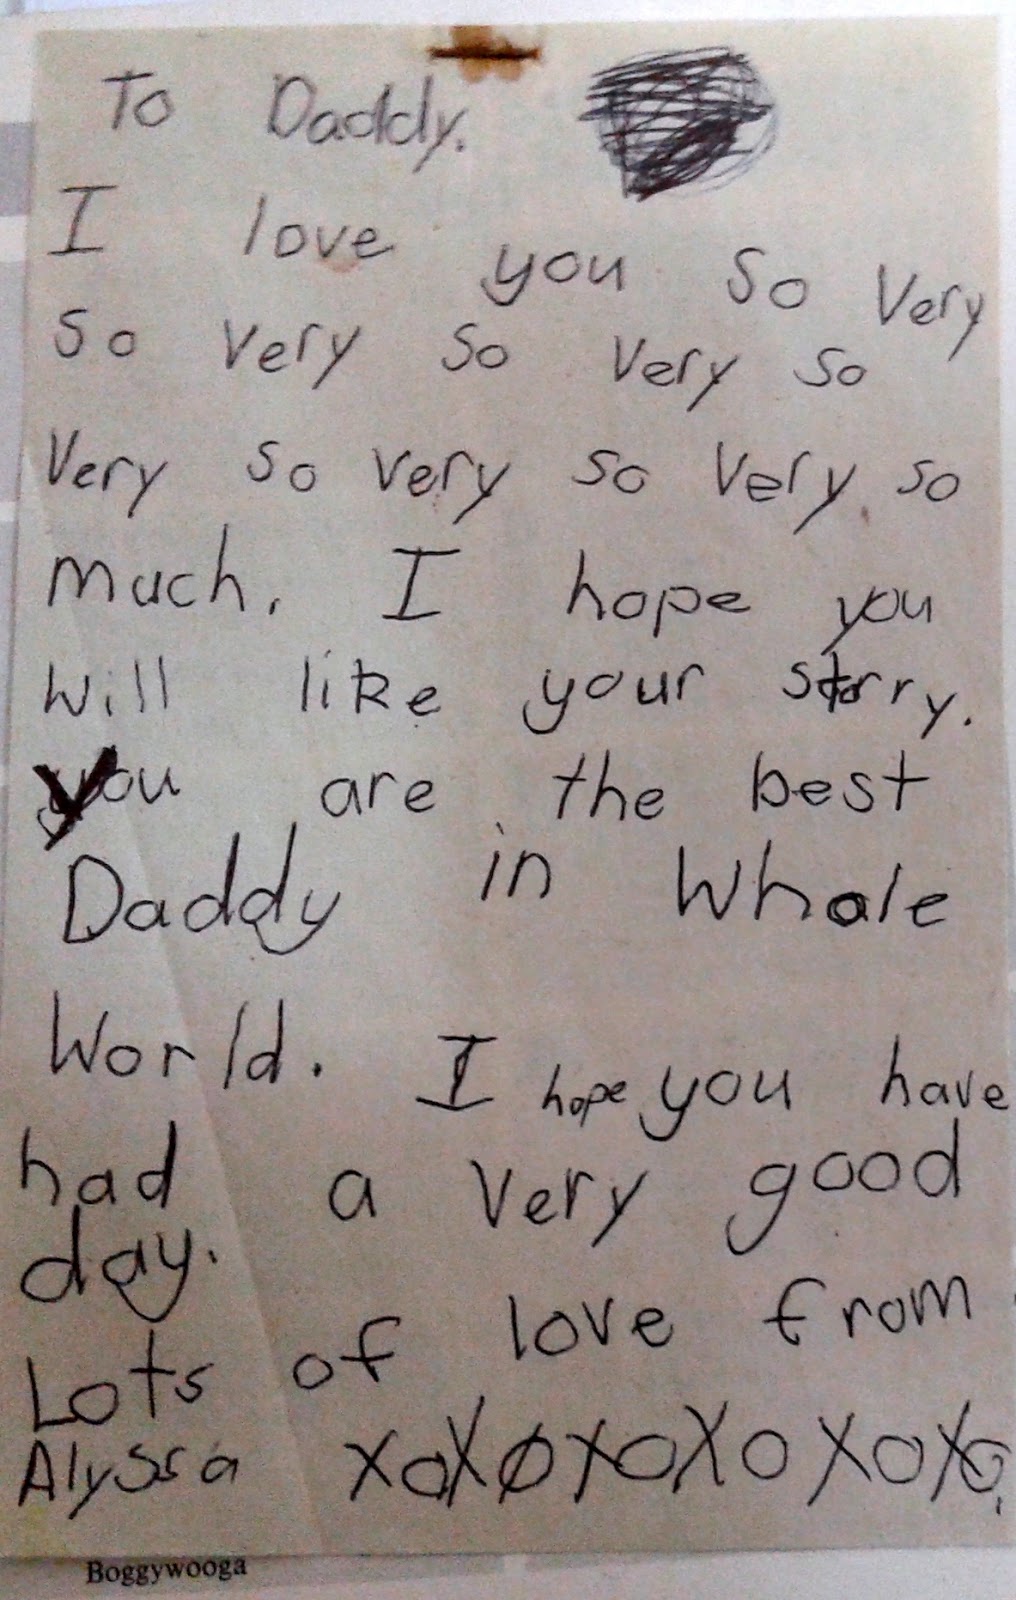 To Daddy.
I love you so very
so very so very so
very so very so very so
much. I hope you
will like your storry.
you are the best
Daddy in whole
world. I hope you have
had a very good
day.
Lots of love from
Alyssa xoxoxoxoxoxo
Boggywooga